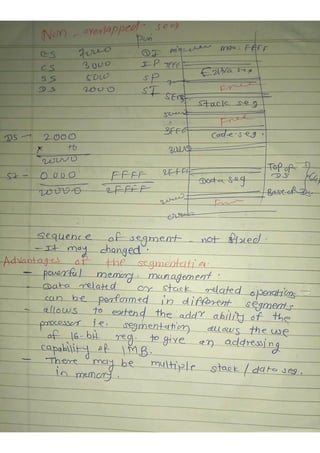 Non-overlapped seg
7000
CS 3000 IP
SS 5000 SP
DS 2000 SI
max. FFFF
Extra seg
Free
Stack seg
Free
3FFF
Code seg.
DS - 2000
10
20000
SI - 0000 FFFF
20000 2FFFF
Data seg
Top of DS
Base of
sequence of segment - not fixed.
- It may changed.
Advantages of the segmentation
- powerful memory management.
- Data related or stack related operations
can be performed in different segments
- allows to extend the addr ability of the
processor i.e. segmentation allows the use
of 16-bit reg. to give an addressing
capability of 1MB.
- There may be multiple stack / data seg.
in memory.